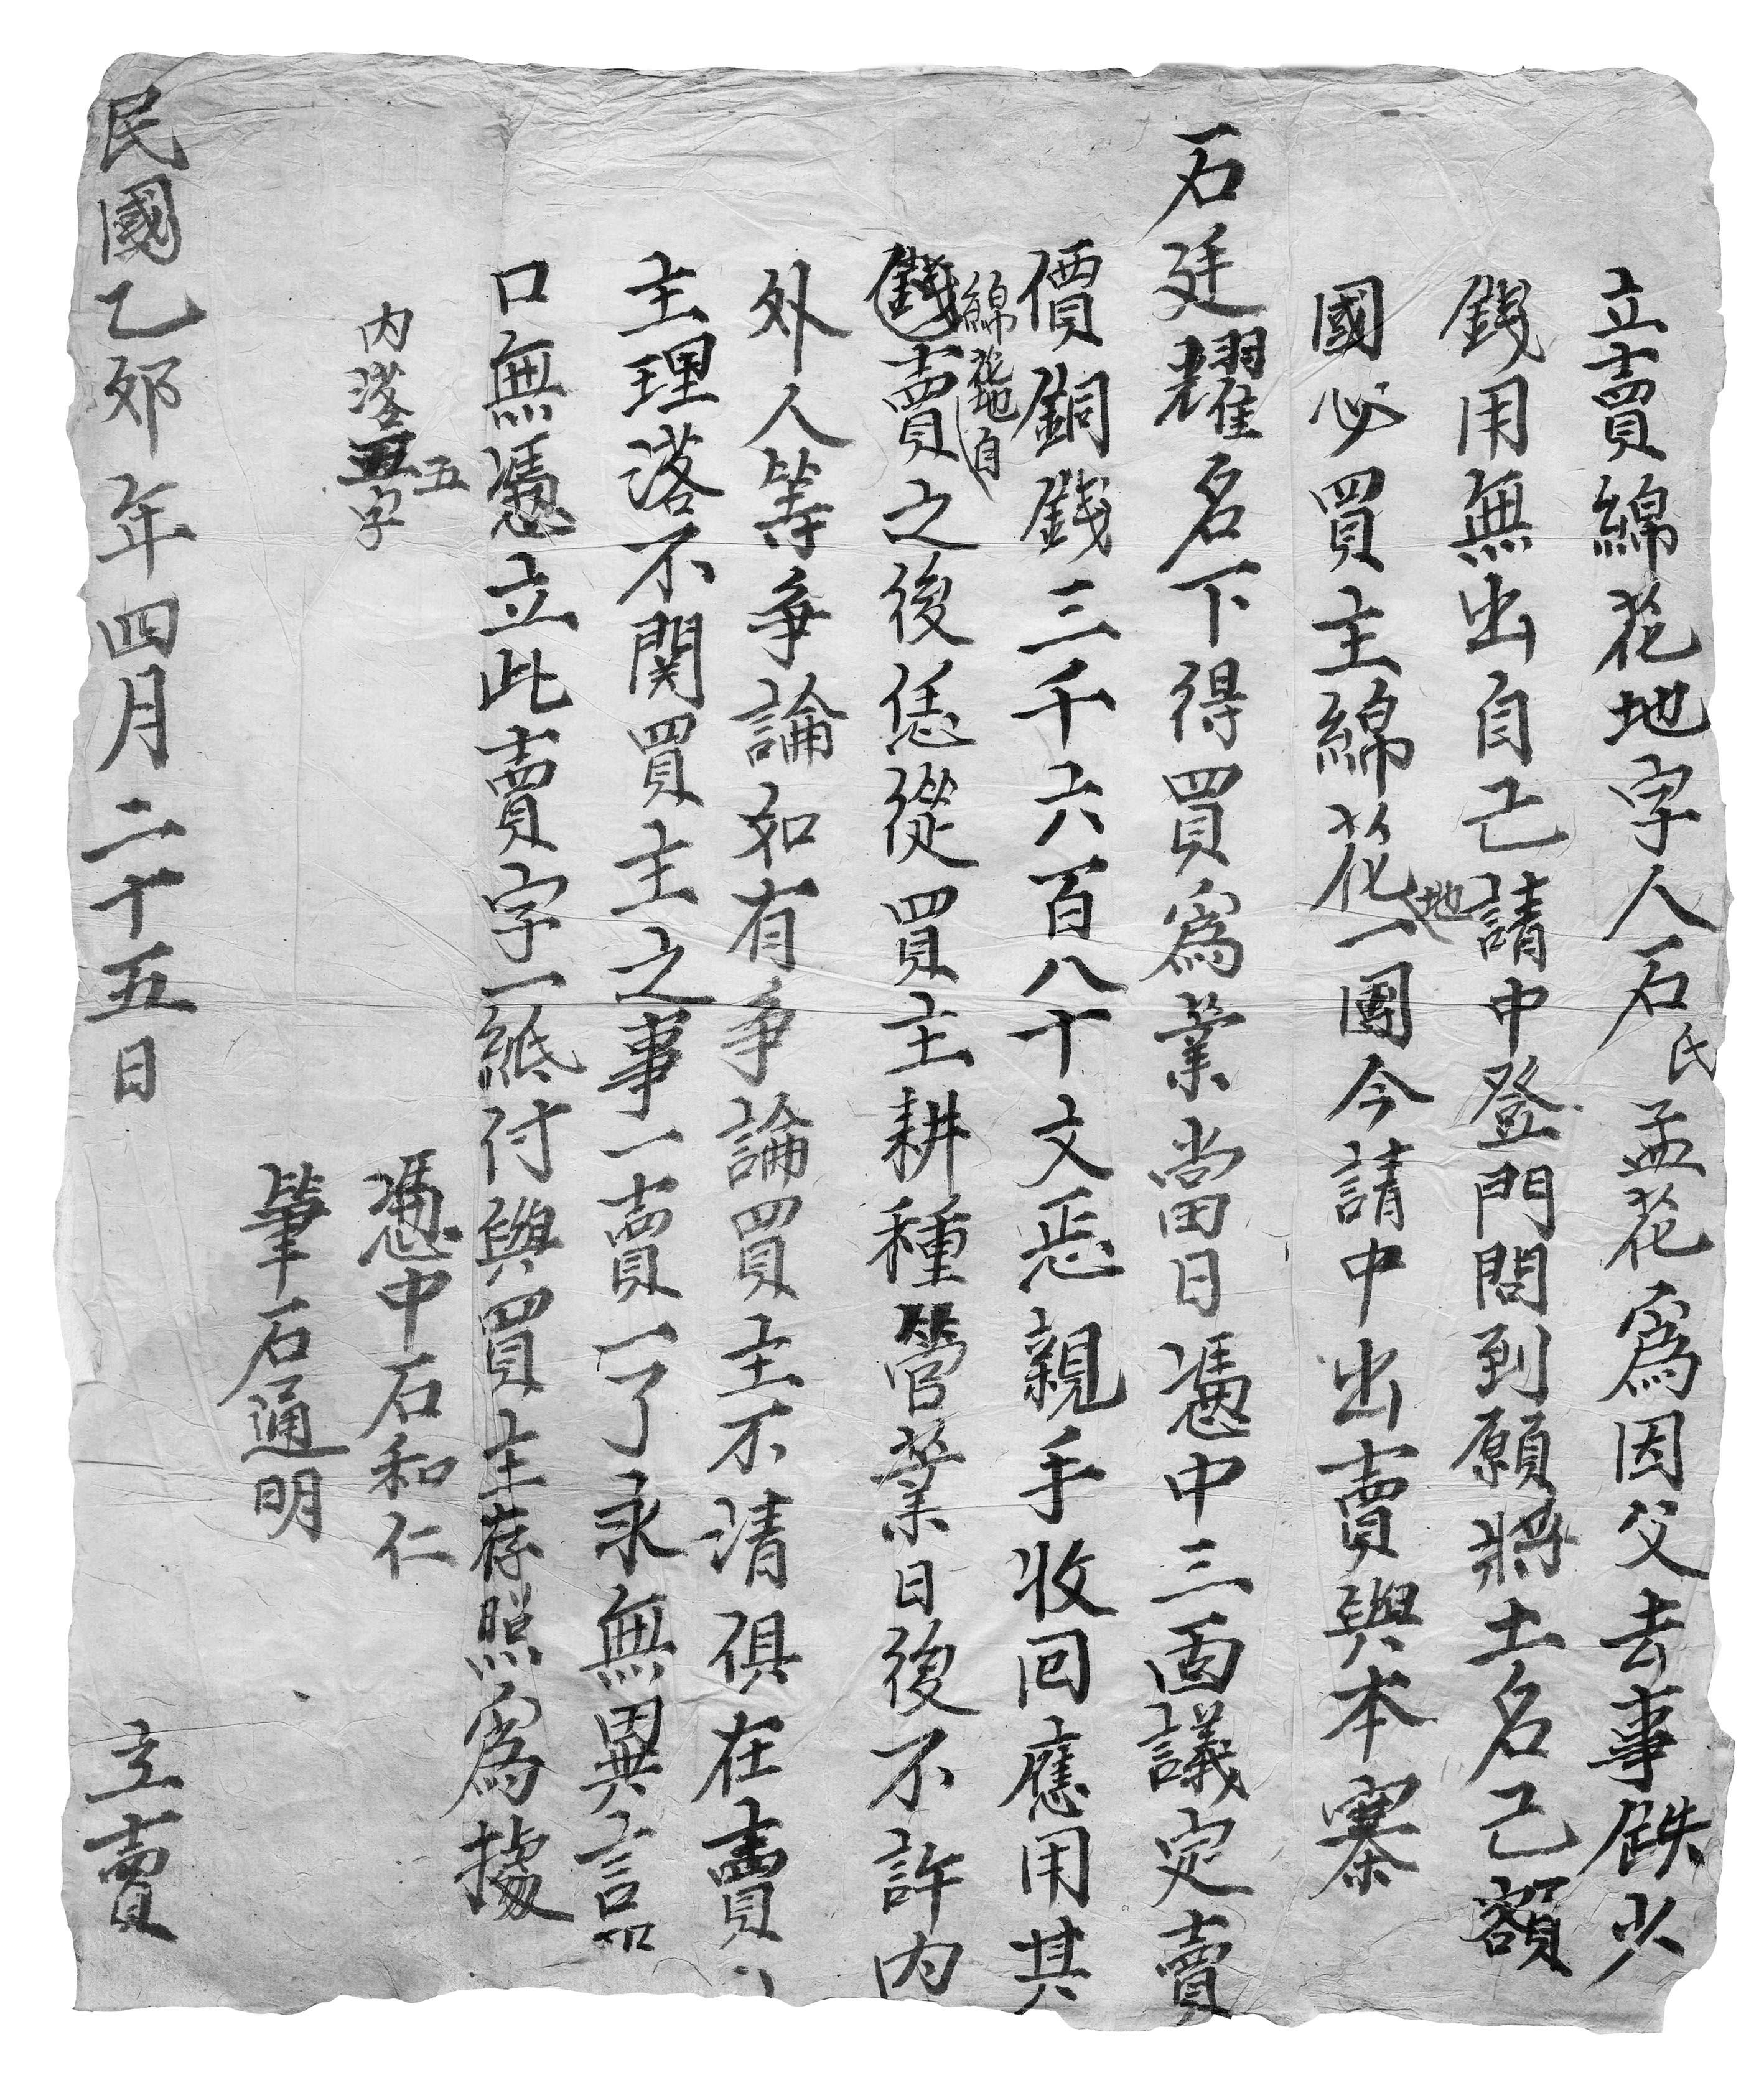 立賣綿花地字人石氏孟花爲因父去事缺少
錢用無出自己請中登門問到願將土名己額
國必買主綿花地一團今請中出賣與本寨
石廷耀名下得買爲業當日憑中三面議定賣
價銅錢三千六百八十文恁親手收回應用其
錢綿花地自賣之後恁從買主耕種營業日後不許內
外人等爭論如有爭論買主不清俱在賣
主理落不關買主之事一賣一了永無異言
口無憑立此賣字一紙付與買主存照爲據
內落五字
憑中石和仁
筆石通明
民國乙卯年四月二十五日 立賣